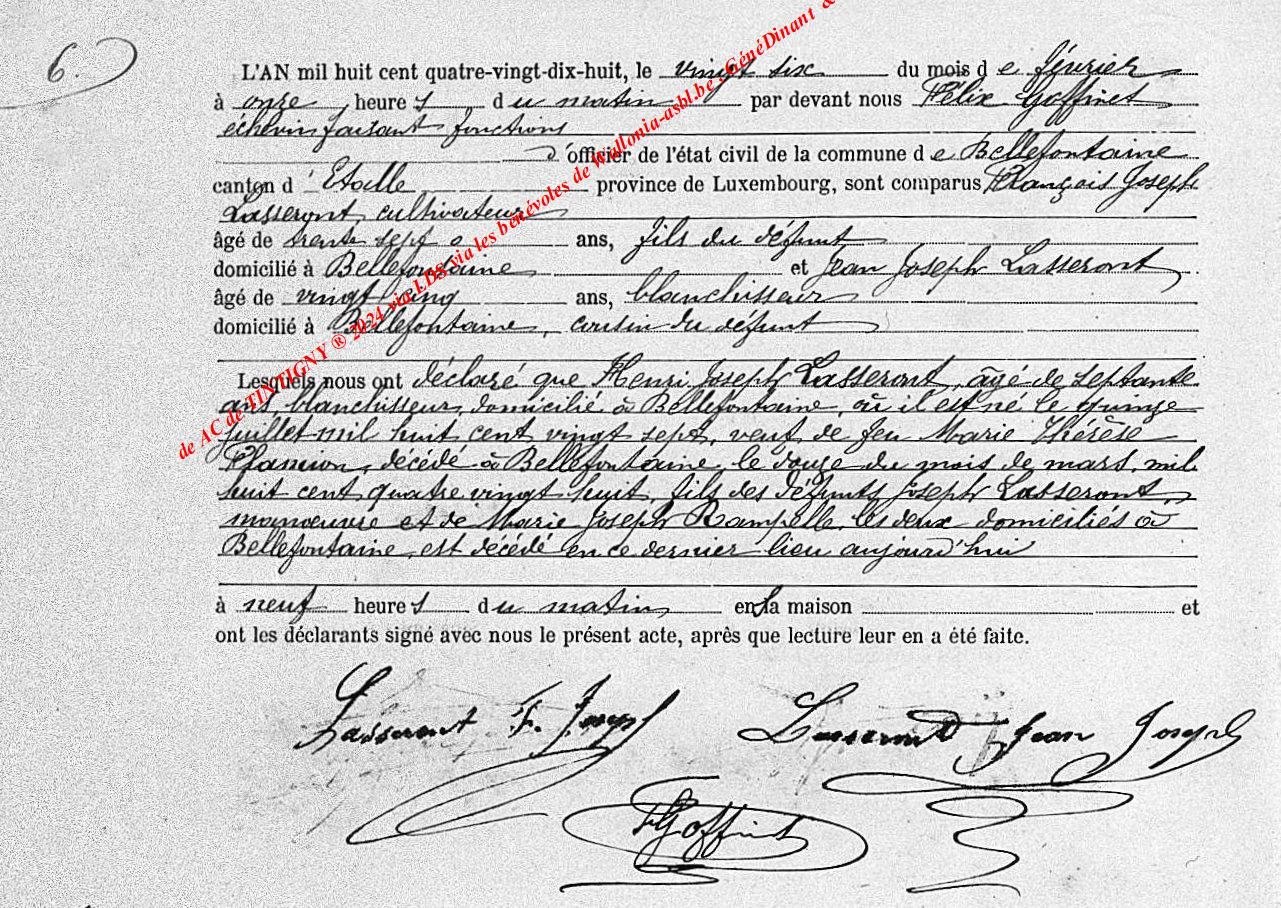 6.
L'AN mil huit cent quatre-vingt-dix-huit, le vingt six du mois de février
à onze heures du matin par devant nous Félix Goffinet
échevin faisant fonctions
d'officier de l'état civil de la commune de Bellefontaine
canton d'Etalle province de Luxembourg, sont comparus François Joseph
Lasseront, cultivateur
âgé de trente sept ans, fils du défunt
domicilié à Bellefontaine et Jean Joseph Lasseront,
âgé de vingt cinq ans, blanchisseur
domicilié à Bellefontaine, cousin du défunt
Lesquels nous ont déclaré que Henri Joseph Lasseront, âgé de septante
ans, blanchisseur, domicilié à Bellefontaine, où il est né le quinze
juillet mil huit cent vingt sept, veuf de feu Marie Thérèse
décédé à Bellefontaine, le douze du mois de mars, mil
huit cent quatre vingt huit, fils des défunts Joseph Lasseront,
manoeuvre et de Marie Joseph Rampelle, les deux domiciliés à
Bellefontaine, est décédé en ce dernier lieu aujourd'hui
à neuf heures du matin en sa maison et
ont les déclarants signé avec nous le présent acte, après que lecture leur en a été faite.
Lasseront F. Joseph Lasseront Jean Joseph
F Goffinet
de AC de TINTIGNY ® 2024 via LDS via les bénévoles de Wallonia-asbl.be : GénéDinant &